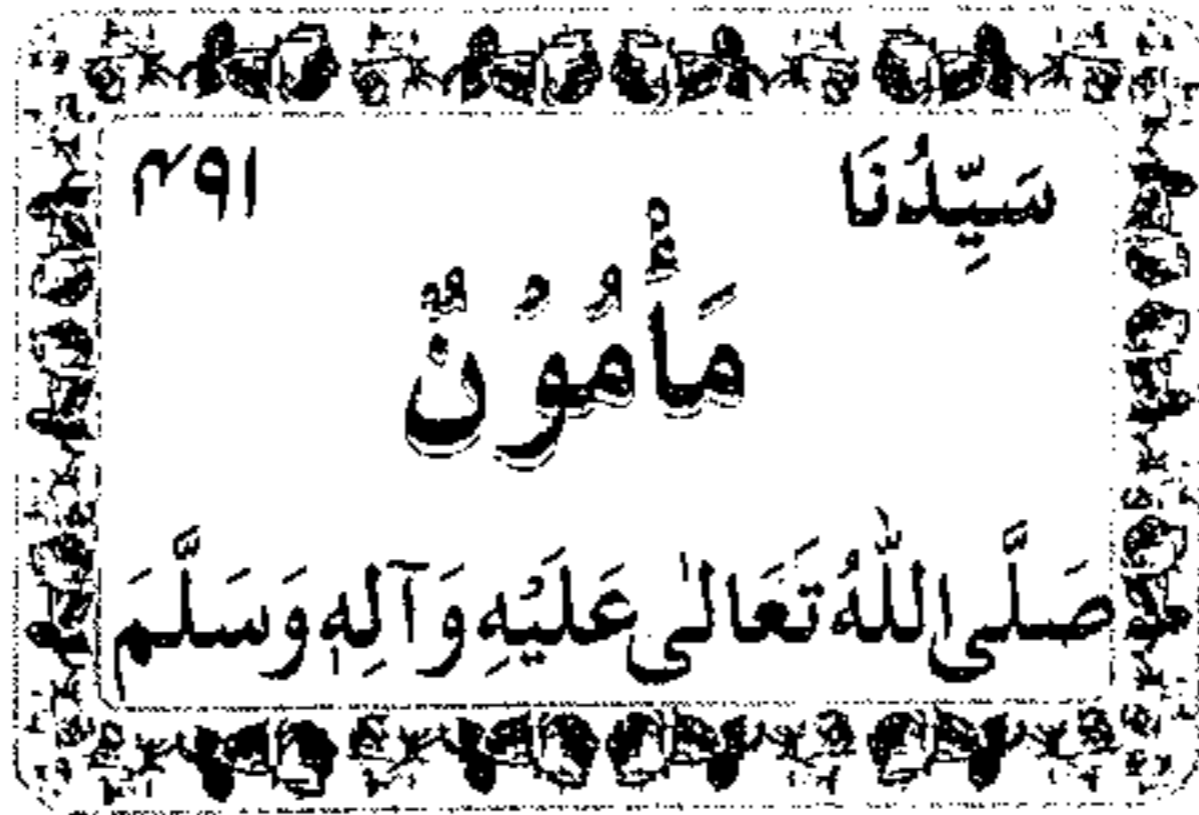 سَيِّدُنَا ۴۹۱
مَأْمُوْنٌ
صَلَّى اللّٰهُ تَعَالٰى عَلَيْهِ وَآلِهٖ وَسَلَّمَ